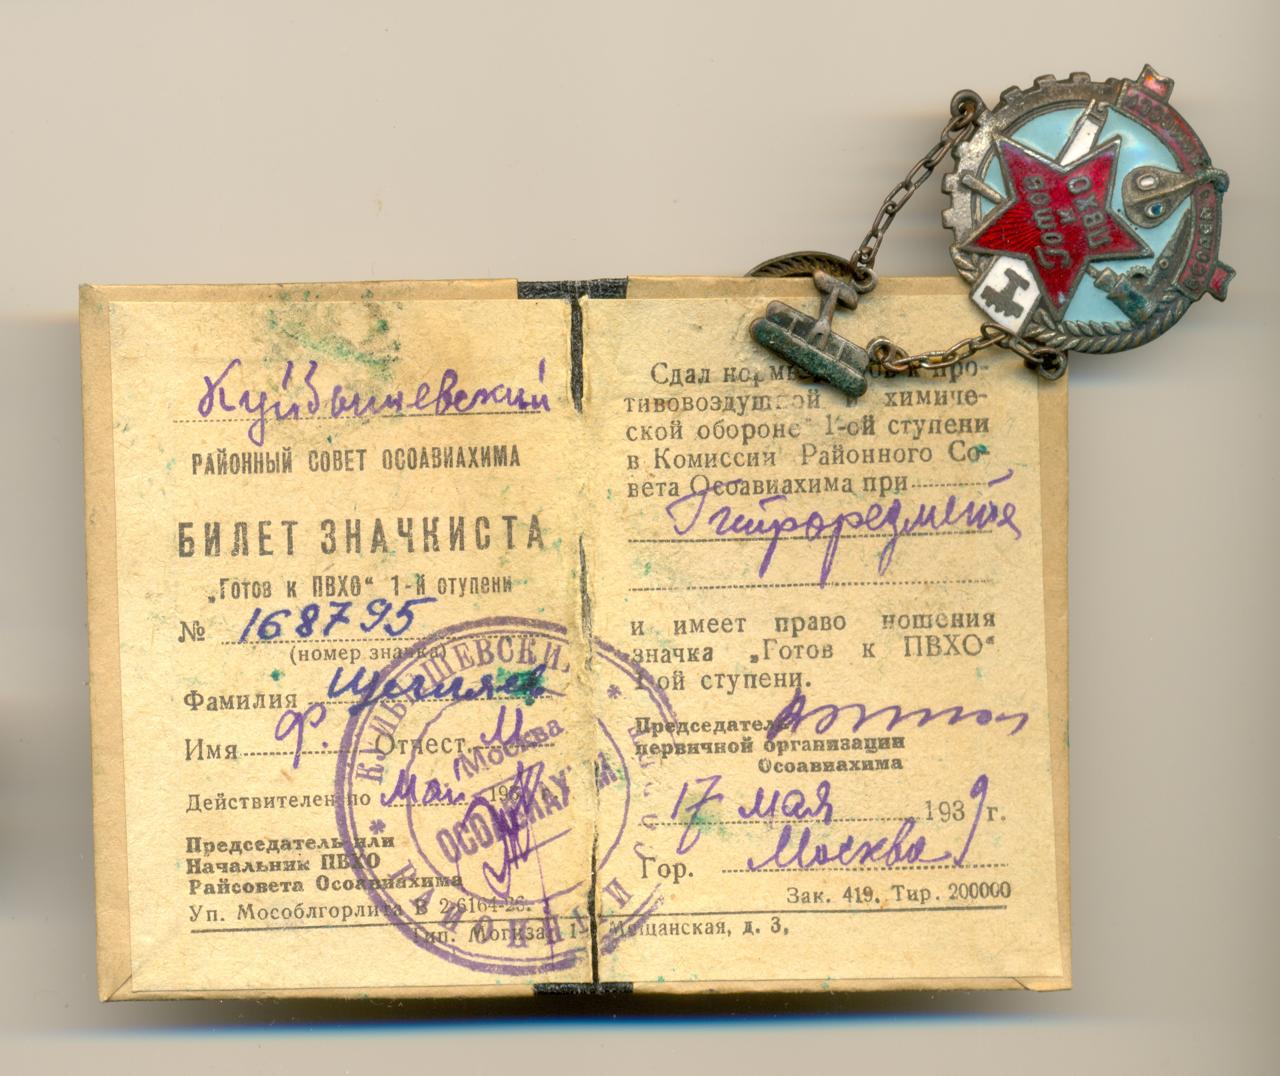 Куйбышевский
РАЙОННЫЙ СОВЕТ ОСОАВИАХИМА
БИЛЕТ ЗНАЧКИСТА
„Готов к ПВХО“ 1-й ступени
№ 168795
(номер значка)
Фамилия
Имя Ф. Отчест. М.
Действителен по Май 19
Председатель или
Начальник ПВХО
Райсовета Осоавиахима
Уп. Мособлгорлита В 2-6164-26.
Сдал нормы к про-
тивовоздушной и химиче-
ской обороне 1-ой ступени
в Комиссии Районного Со-
вета Осоавиахима при
Гипроредмета
и имеет право ношения
значка „Готов к ПВХО“
1-ой ступени.
Председатель
первичной организации
Осоавиахима
17 мая 1939 г.
Гор. Москва
Зак. 419. Тир. 200000
Тип. Могиза 1-я Мещанская, д. 3,
КУЙБЫШЕВСКИЙ РАЙОННЫЙ СОВЕТ
Москва
ОСОАВИАХИМ
Готов
к
ПВХО
ОСОАВИАХИМ СССР